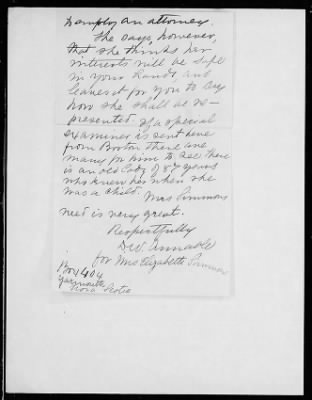 to employ an attorney.
She says, however,
that she thinks her
interests will be safe
in your hands and
leaves it for you to say
how she shall be re-
presented. If a special
examiner is sent here
from Boston there are
many for him to see; there
is an old lady of 87 years
who knew her when she
was a child. Mrs Simmons
need is very great.
Respectfully
D.W.
for Mrs Elizabeth Simmons
Box 404
Yarmouth
Nova Scotia